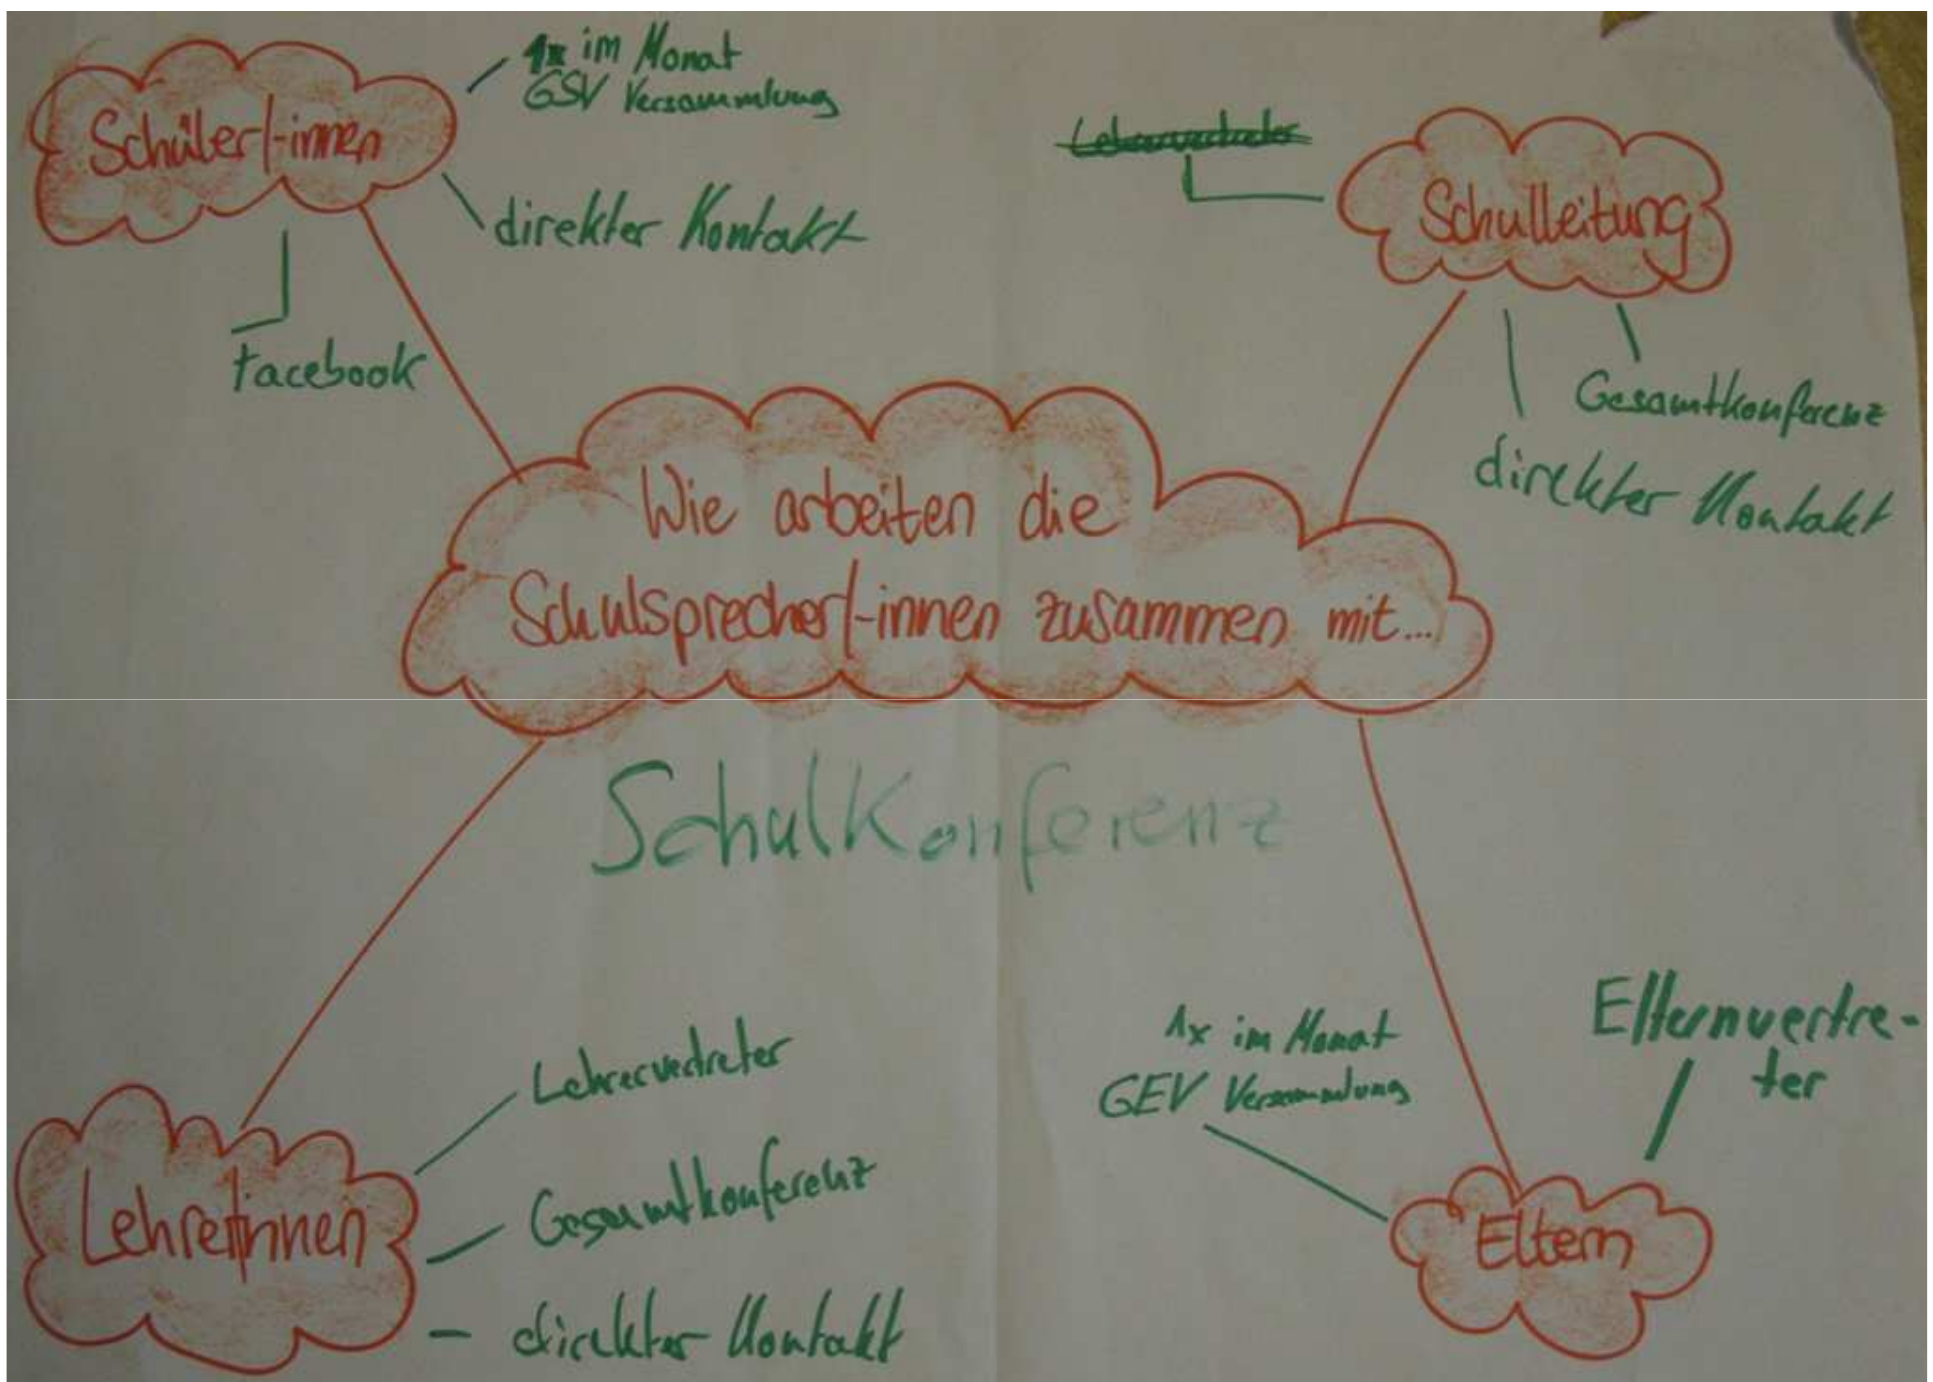 Schüler/-innen
1x im Monat
GSV Versammlung
direkter Kontakt
Facebook
Lehrervertreter
Schulleitung
Gesamtkonferenz
direkter Kontakt
Wie arbeiten die
Schulsprecher/-innen zusammen mit...
Schulkonferenz
Lehrer/innen
Lehrervertreter
Gesamtkonferenz
direkter Kontakt
1x im Monat
GEV Versammlung
Elternvertre-
ter
Eltern